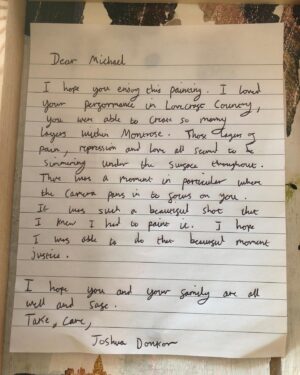 Dear Michael
I hope you enjoy this painting. I loved
your performance in Lovecraft Country,
you were able to create so many
layers within Montrose. Those layers of
pain, repression and love all seemed to be
simmering under the surface throughout.
There was a moment in particular where
the camera pans in to focus on you.
It was such a beautiful shot that
I knew I had to paint it. I hope
I was able to do that beautiful moment
Justice.
I hope you and your family are all
well and safe.
Take, Care,
Joshua Donkor